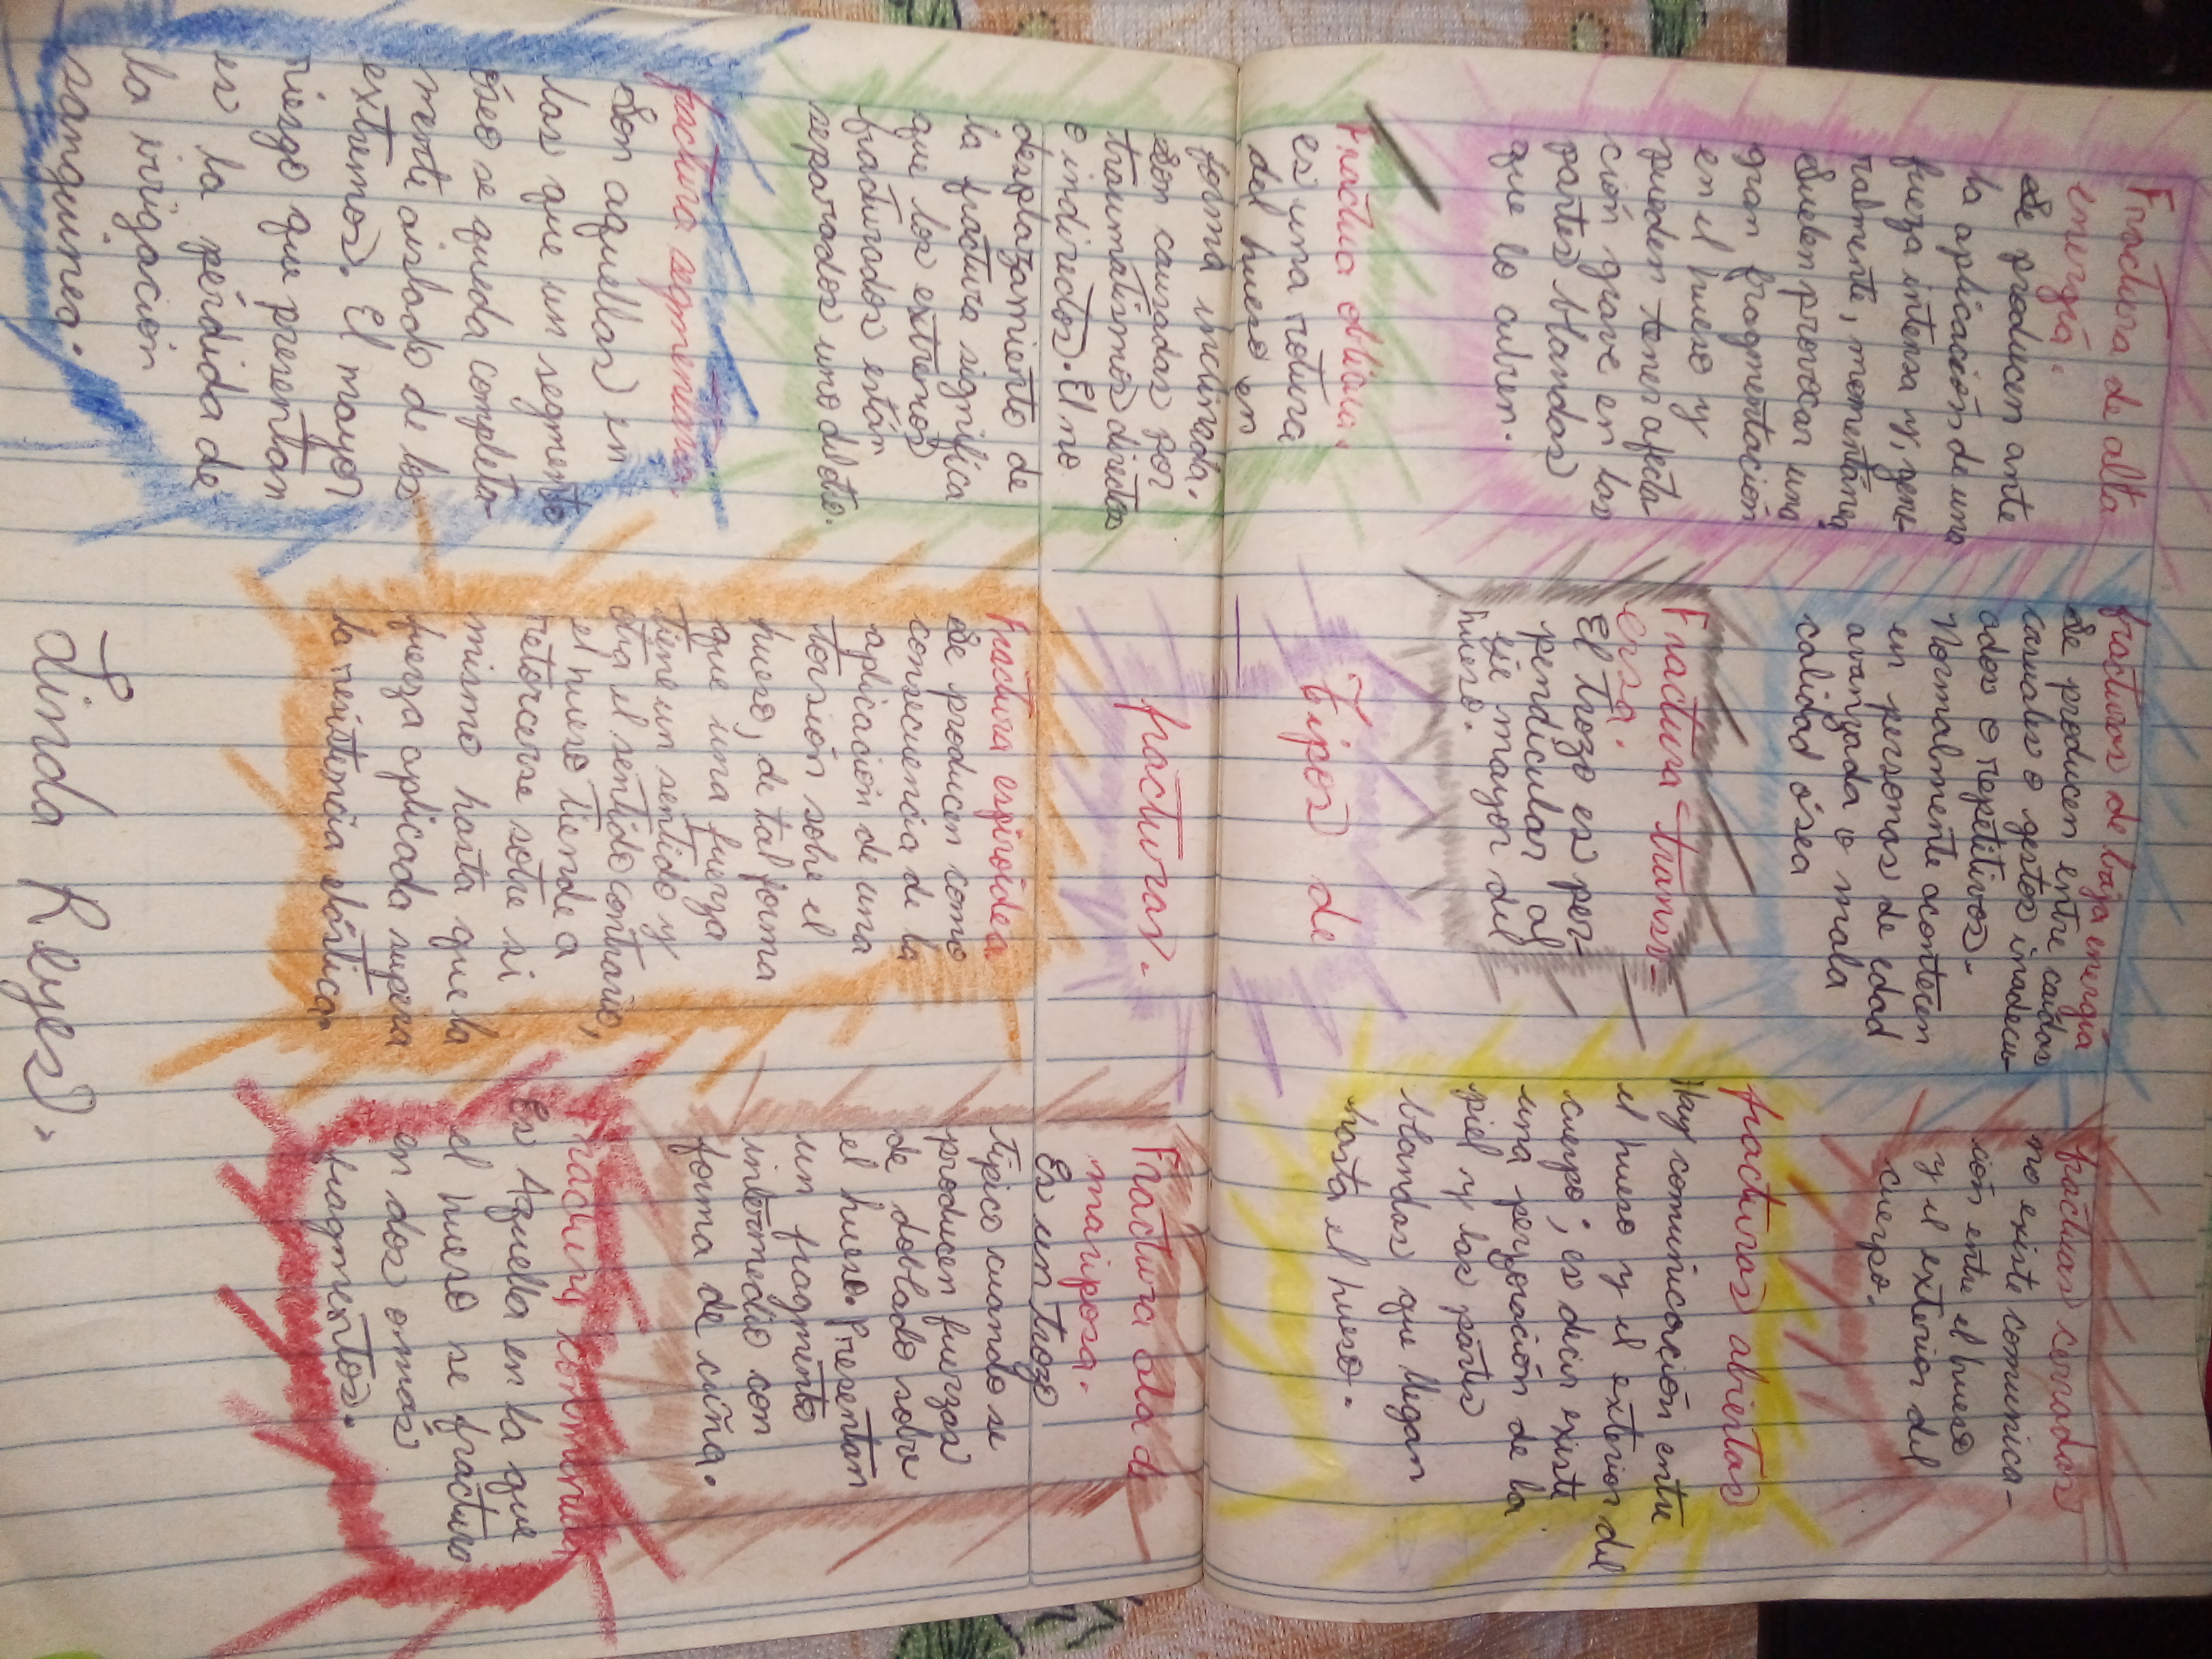 Fractura de alta
energía.
Se producen ante
la aplicación de una
fuerza intensa y, gene-
ralmente, momentánea
Suelen provocar una
gran fragmentación
en el hueso y
pueden tener afecta-
ción grave en las
partes blandas
que lo cubren.
fracturas de baja energía
Se producen entre caidas
casuales o gestos inadecu-
ados o repetitivos.
Normalmente acontecen
en personas de edad
avanzada o mala
calidad ósea
fracturas cerradas
no existe comunica-
ción entre el hueso
y el exterior del
cuerpo.
Fractura oblicua.
es una rotura
del hueso en
forma inclinada.
Son causadas por
traumatismos directos
o indirectos. El no
desplazamiento de
la fractura significa
que los extremos
fracturados están
separados uno del otro.
Fractura trans-
ersa.
El trozo es per-
pendicular al
eje mayor del
hueso.
fracturas abiertas
Hay comunicación entre
el hueso y el exterior del
cuerpo; es decir existe
una perforación de la
piel y las partes
blandas que llegan
hasta el hueso.
Tipos de
fracturas.
fractura segmentaria.
Son aquellas en
las que un segmento
óseo se queda completa-
mente aislado de los
extremos. El mayor
riesgo que presentan
es la pérdida de
la irrigación
sanguinea.
fractura espiroidea
Se producen como
consecuencia de la
aplicación de una
torsión sobre el
hueso, de tal forma
que una fuerza
tiene un sentido y
otra el sentido contrario,
el hueso tiende a
retorcerse sobre si
mismo hasta que la
fuerza aplicada supera
la resistencia elástica.
Fractura ala de
mariposa.
Es un trozo
tipico cuando se
producen fuerzas
de doblado sobre
el hueso. Presentan
un fragmento
intermedio con
forma de cuña.
Fractura conminuta
Es Aquella en la que
el hueso se fractura
en dos o más
fragmentos.
Linda Reyes.